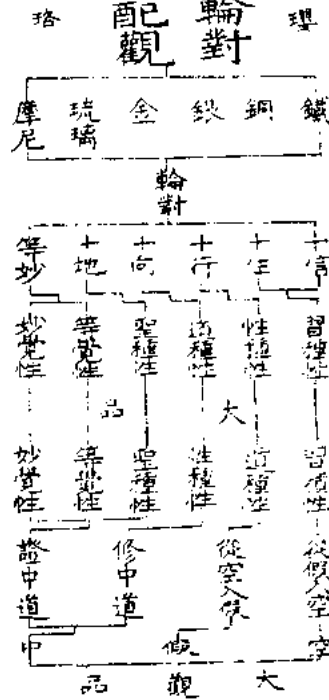 瓔
輪對
配觀
珞
鐵
銅
銀
金
琉璃
摩尼
輪對
十信
十住
十行
十向
十地
等妙
習種性
性種性
道種性
聖種性
等覺性
妙覺性
大
品
習種性
道種性
性種性
聖種性
等覺性
妙覺性
從假入空
從空入假
修中道
證中道
空
假
中
大
觀
品